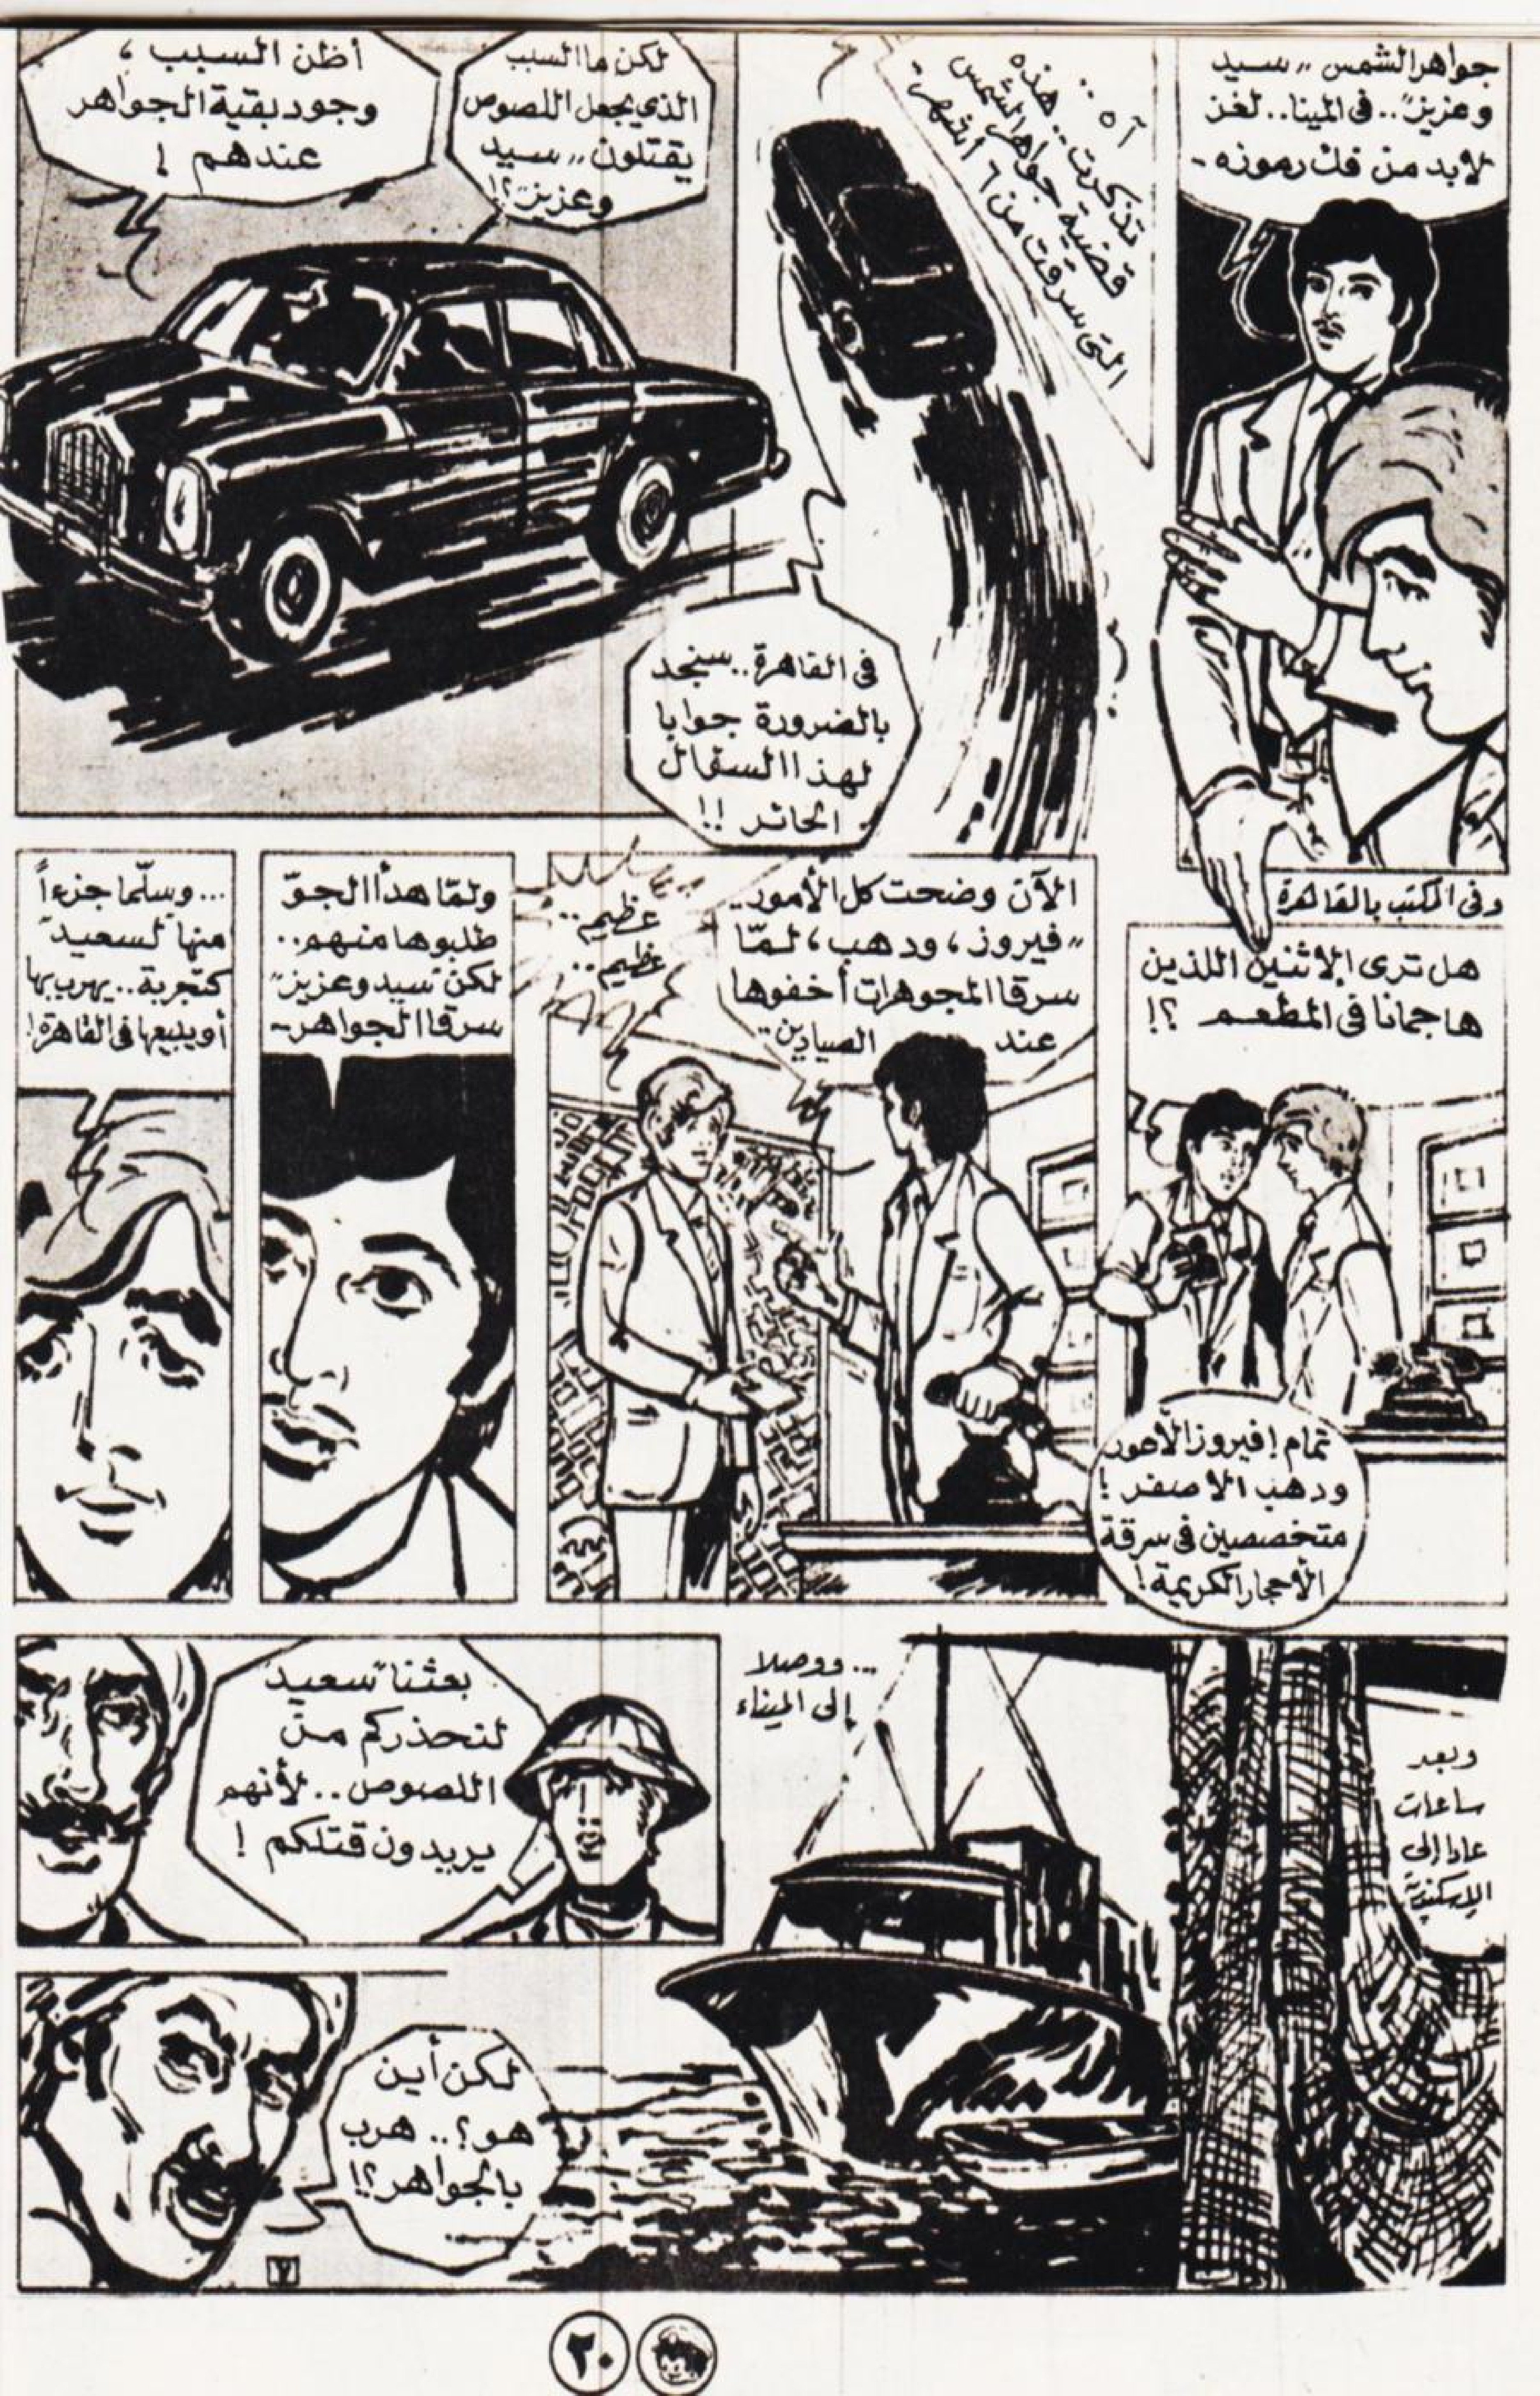 جواهر الشمس „سيد
وعزيز".. فى المينا.. لغز
لابد من فك رموزه -
آه ..
تذكرت.. هذه
قضية جواهر الشمس
التى سرقت من ٦ أشهر.
لكن ما السبب
الذى يجعل اللصوص
يقتلون „سيد
وعزيز"؟!
أظن السبب ،
وجود بقية الجواهر
عندهم !
فى القاهرة.. سنجد
بالضرورة جوابا
لهذا السؤال
الحائر !!
وفى المكتب بالقاهرة
هل ترى الاثنين اللذين
هاجمانا فى المطعم ؟!
تمام ! فيروز الأحور
ودهب الأصفر !
متخصصين فى سرقة
الأحجار الكريمة !
الآن وضحت كل الأمور..
„فيروز ، ودهب ، لمّا
سرقا المجوهرات أخفوها
عند الصيادين..
عظيم..
عظيم..
ولمّا هدأ الجوّ
طلبوها منهم..
لكن "سيد وعزيز"
سرقا الجواهر -
... وسلّما جزءاً
منها لسعيد"
كتجربة.. يهرب بها
أو يبيعها فى القاهرة !
وبعد
ساعات
عادا إلى
الاسكندرية
... ووصلا
إلى الميناء
بعثنا "سعيد
لنحذركم من
اللصوص.. لأنهم
يريدون قتلكم !
لكن أين
هو؟.. هرب
بالجواهر؟!
٧
٢٠